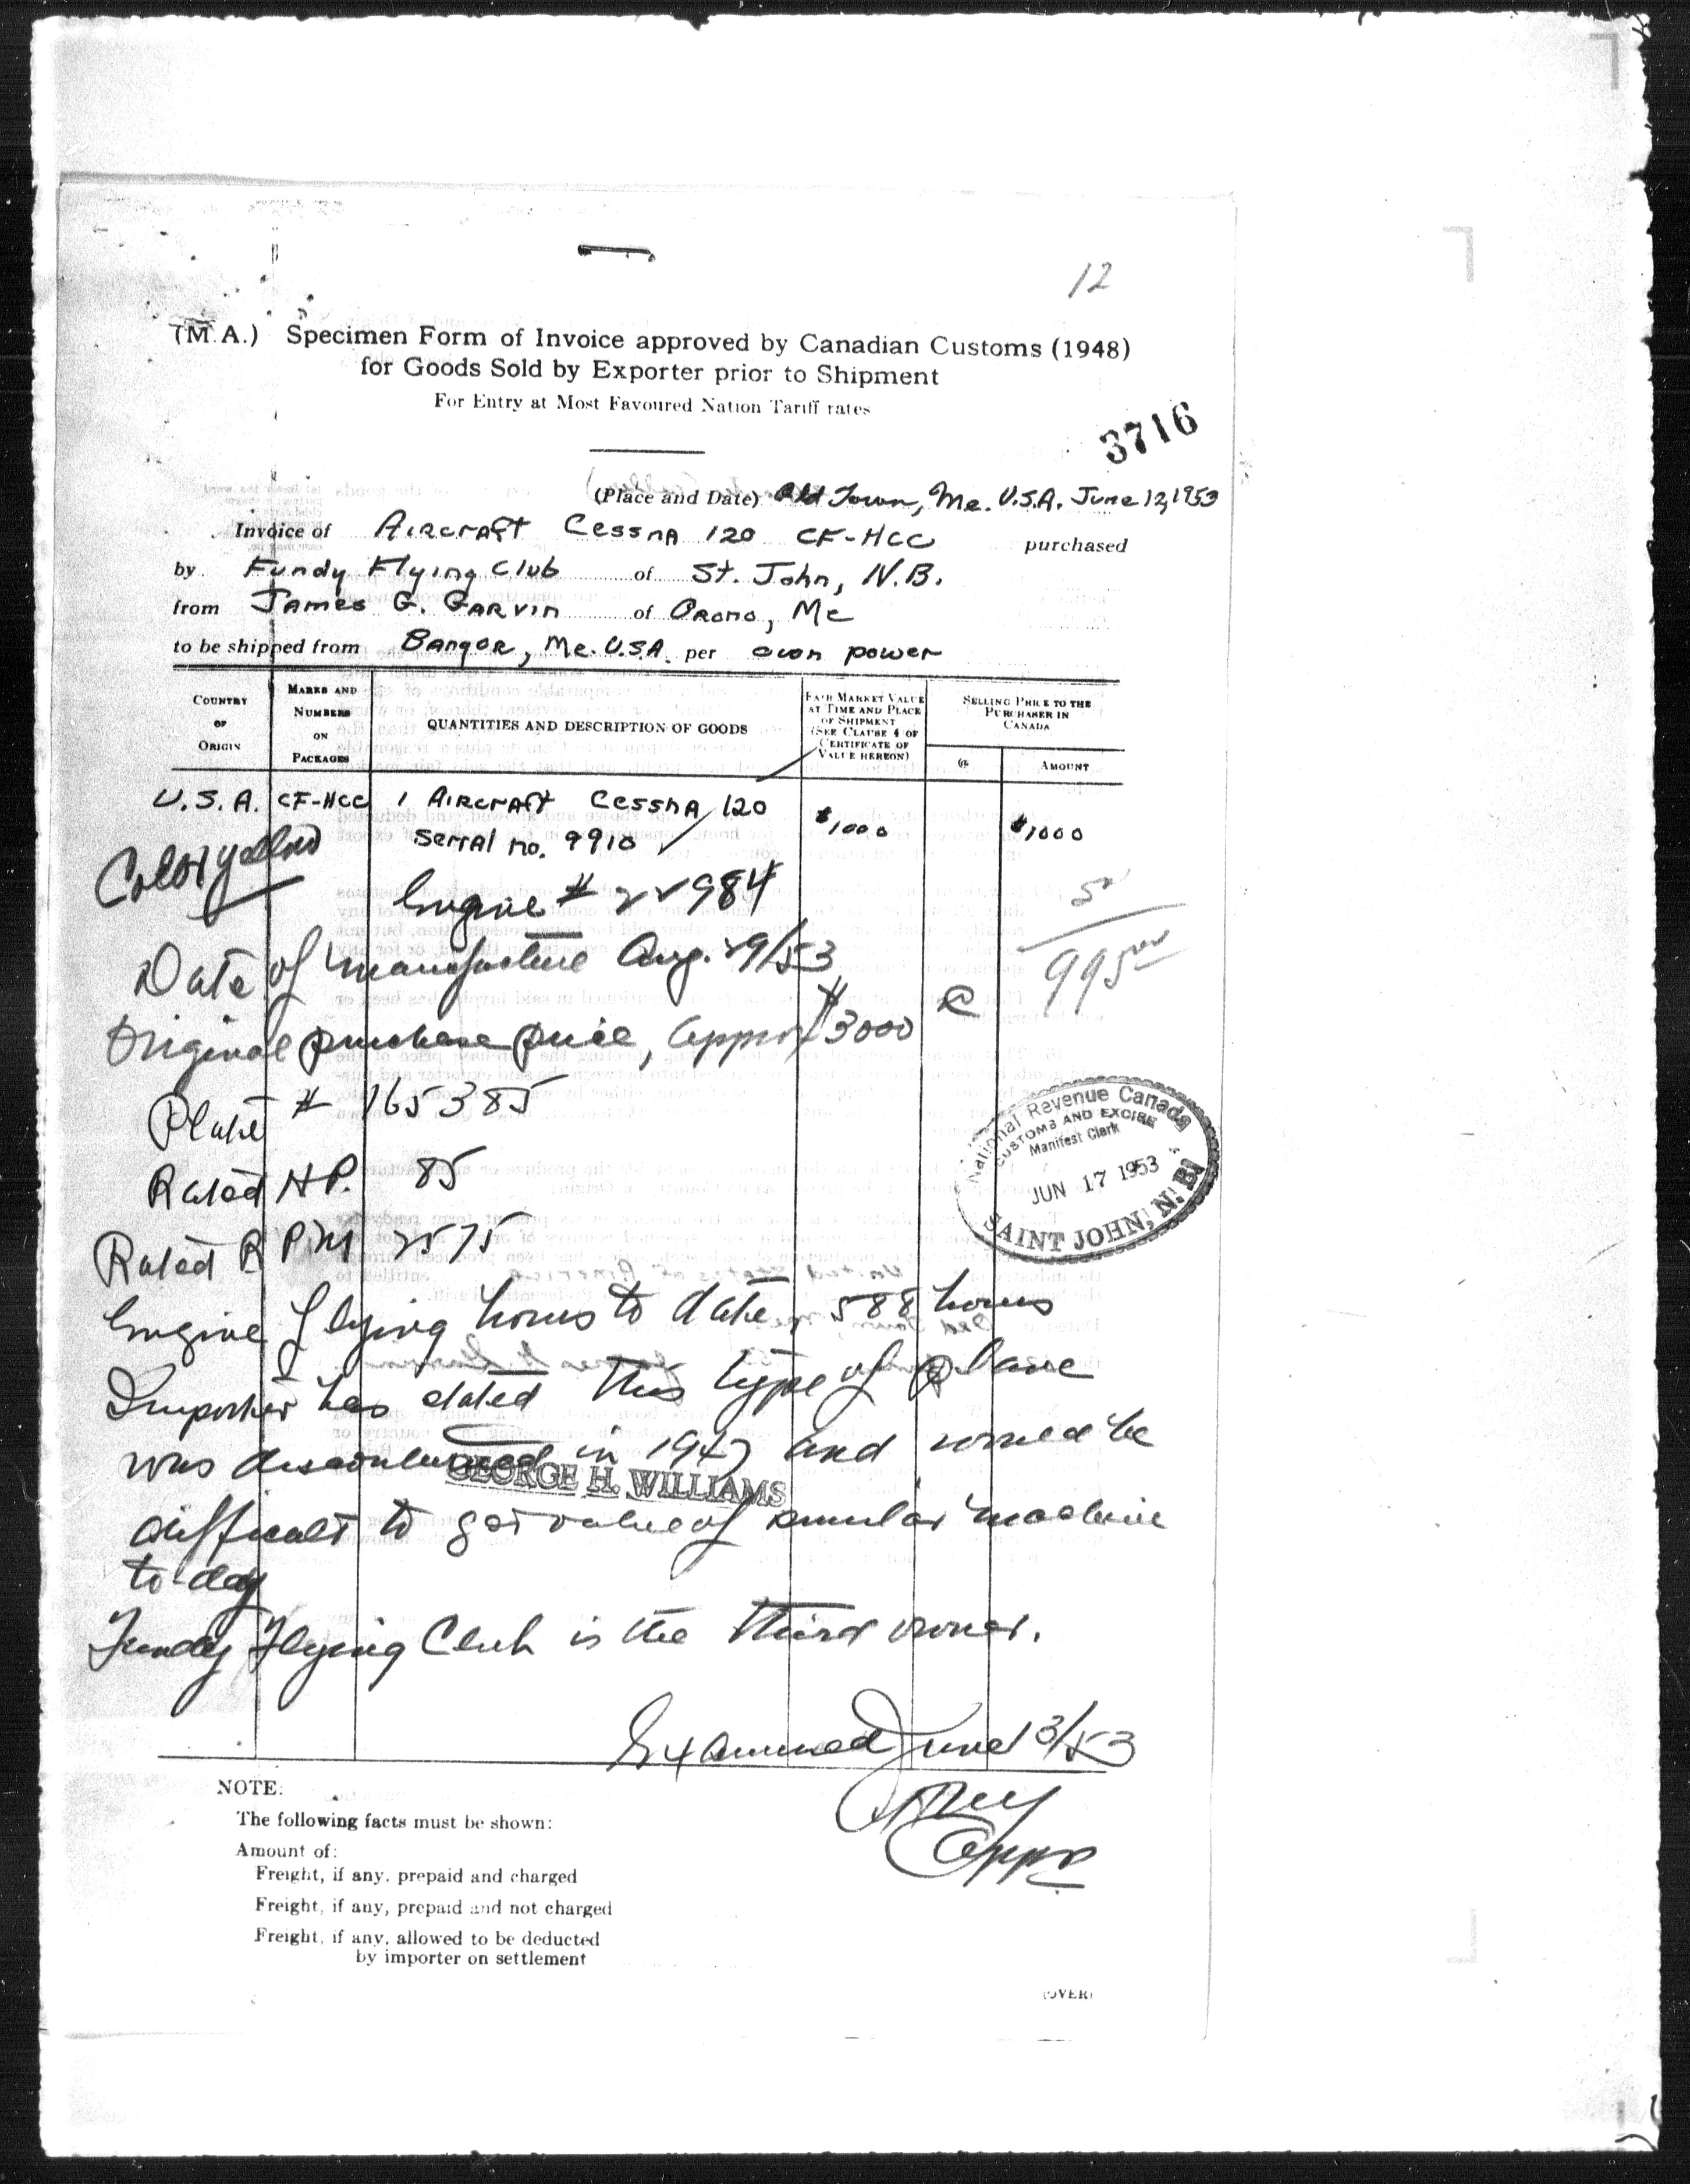 12
(M.A.) Specimen Form of Invoice approved by Canadian Customs (1948)
for Goods Sold by Exporter prior to Shipment
For Entry at Most Favoured Nation Tariff rates
3716
(Place and Date) Old Town, Me. U.S.A. June 12, 1953
Invoice of Aircraft Cessna 120 CF-HCC purchased
by Fundy Flying Club of St. John, N.B.
from James G. Garvin of Orono, Me
to be shipped from Bangor, Me. U.S.A. per own power
COUNTRY OF ORIGIN
MARKS AND NUMBERS ON PACKAGES
QUANTITIES AND DESCRIPTION OF GOODS
FAIR MARKET VALUE AT TIME AND PLACE OF SHIPMENT (SEE CLAUSE 4 OF CERTIFICATE OF VALUE HEREON)
SELLING PRICE TO THE PURCHASER IN CANADA
@
AMOUNT
U.S.A. CF-HCC 1 Aircraft Cessna 120 $1000 $1000
Serial no. 9910
Color yellow
Engine # 22984
Date of manufacture Aug. 29/53
995
Original purchase price, approx $3000
Plate # 165385
National Revenue Canada
CUSTOMS AND EXCISE
Manifest Clerk
JUN 17 1953
SAINT JOHN, N.B.
Rated H.P. 85
Rated R PM 2575
Engine flying hours to date, 588 hours
Importer has stated this type of plane
was discontinued in 1947 and would be
GEORGE H. WILLIAMS
difficult to get value of similar machine
to-day
Fundy Flying Club is the third owner.
Examined June 13/53
NOTE:
The following facts must be shown:
Amount of:
Freight, if any, prepaid and charged
Freight, if any, prepaid and not charged
Freight, if any, allowed to be deducted
by importer on settlement
(OVER)